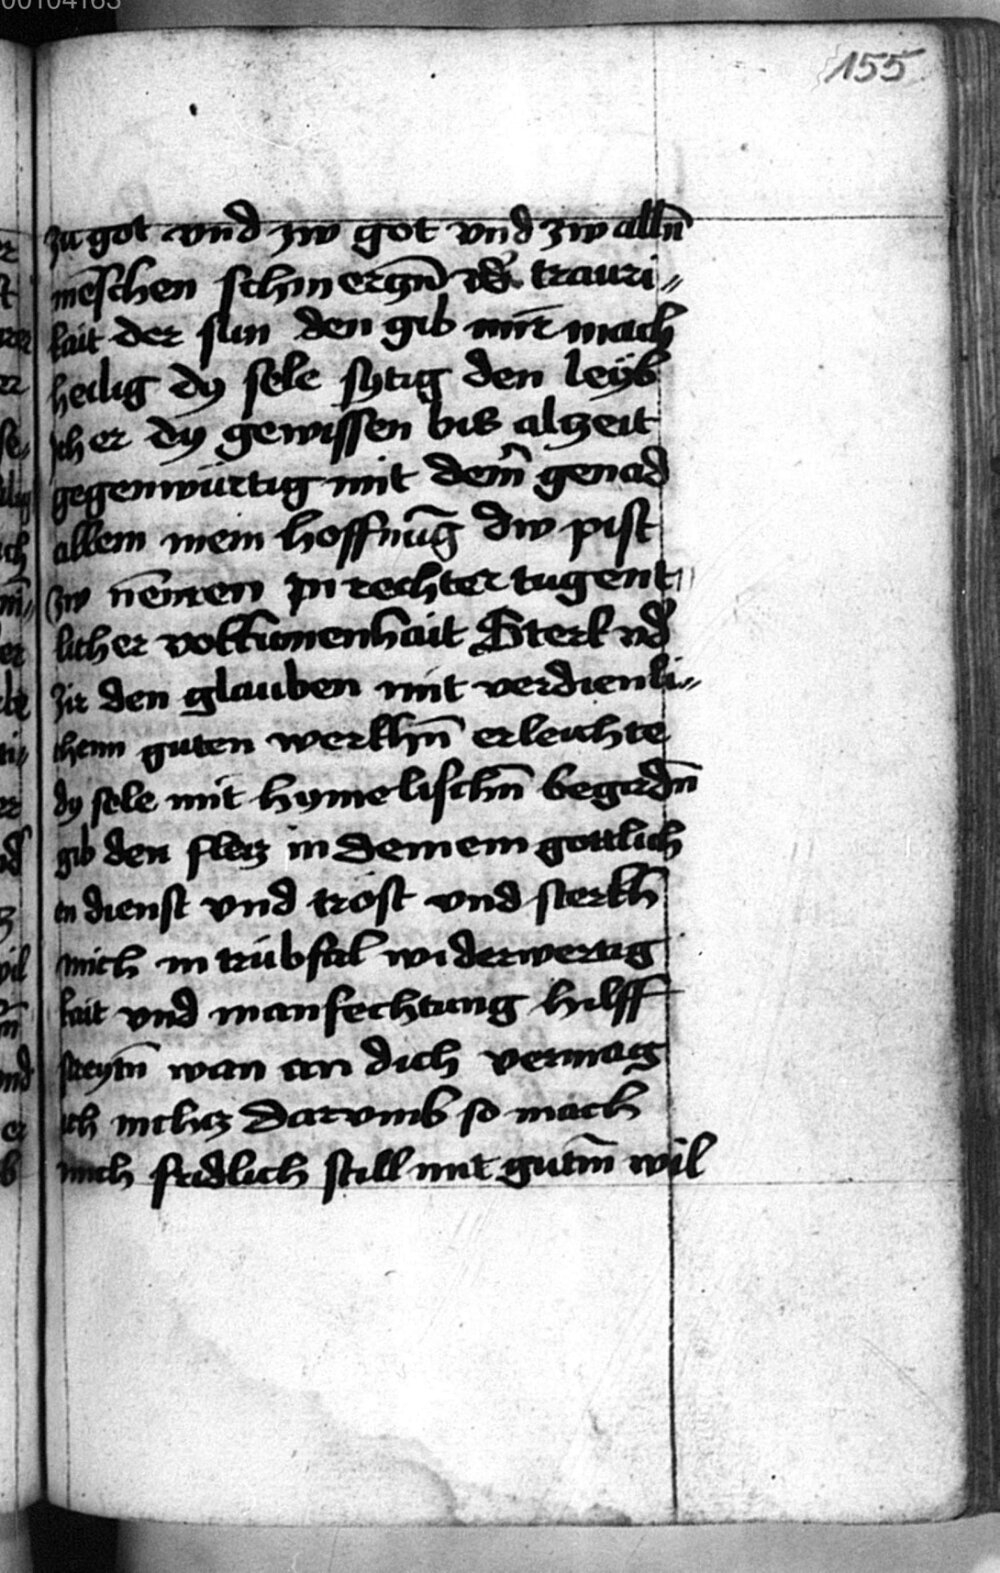 00104163
155
zu got vnd zw got vnd zw alln̄
mēschen schmerczn̄ vn̄ trauri„
kait der sun den gib mir mach
heilig dy sele sytig den leyb
sicher dy gewissen bis alzeit
gegenwürtig mit dem̄ genad
allem mein hoffnūg dw pist
zw nēmen in rechter tugent„
licher volkumenhait Sterk vn̄d
zir den glauben mit verdienli„
chenn guten werkhn̄ erleuchte
dy sele mit hymelischn̄ begirdn̄
gib den fleis in deinem gottlich
en dienst vnd trost vnd sterkh
mich in trübsal widerwertig
kait vnd in anfechtung hilff
streytn̄ wan an dich vermag
ich nichcz Darvmb so mach
mich fridlich still mit gutm̄ wil